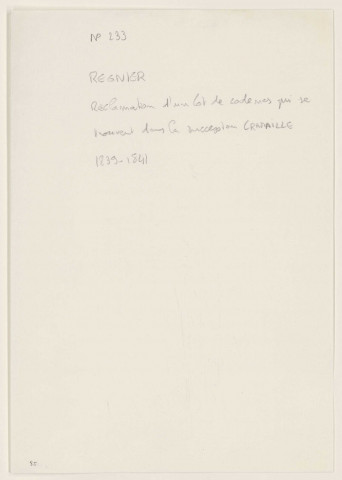 N° 233
REGNIER
Réclamation d'un lot de cadavres qui se
trouvent dans la succession
1839-1841